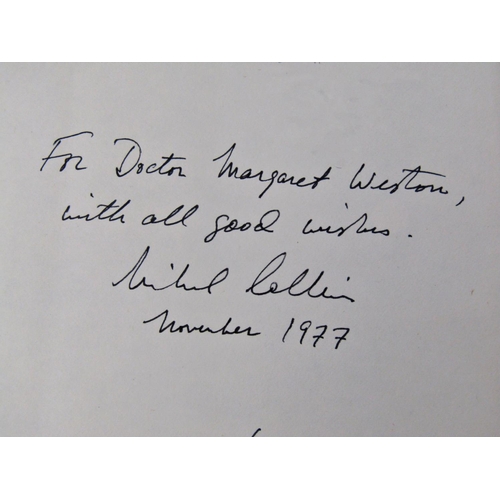 For Doctor Margaret Weston,
with all good wishes.
Michael Collins
November 1977